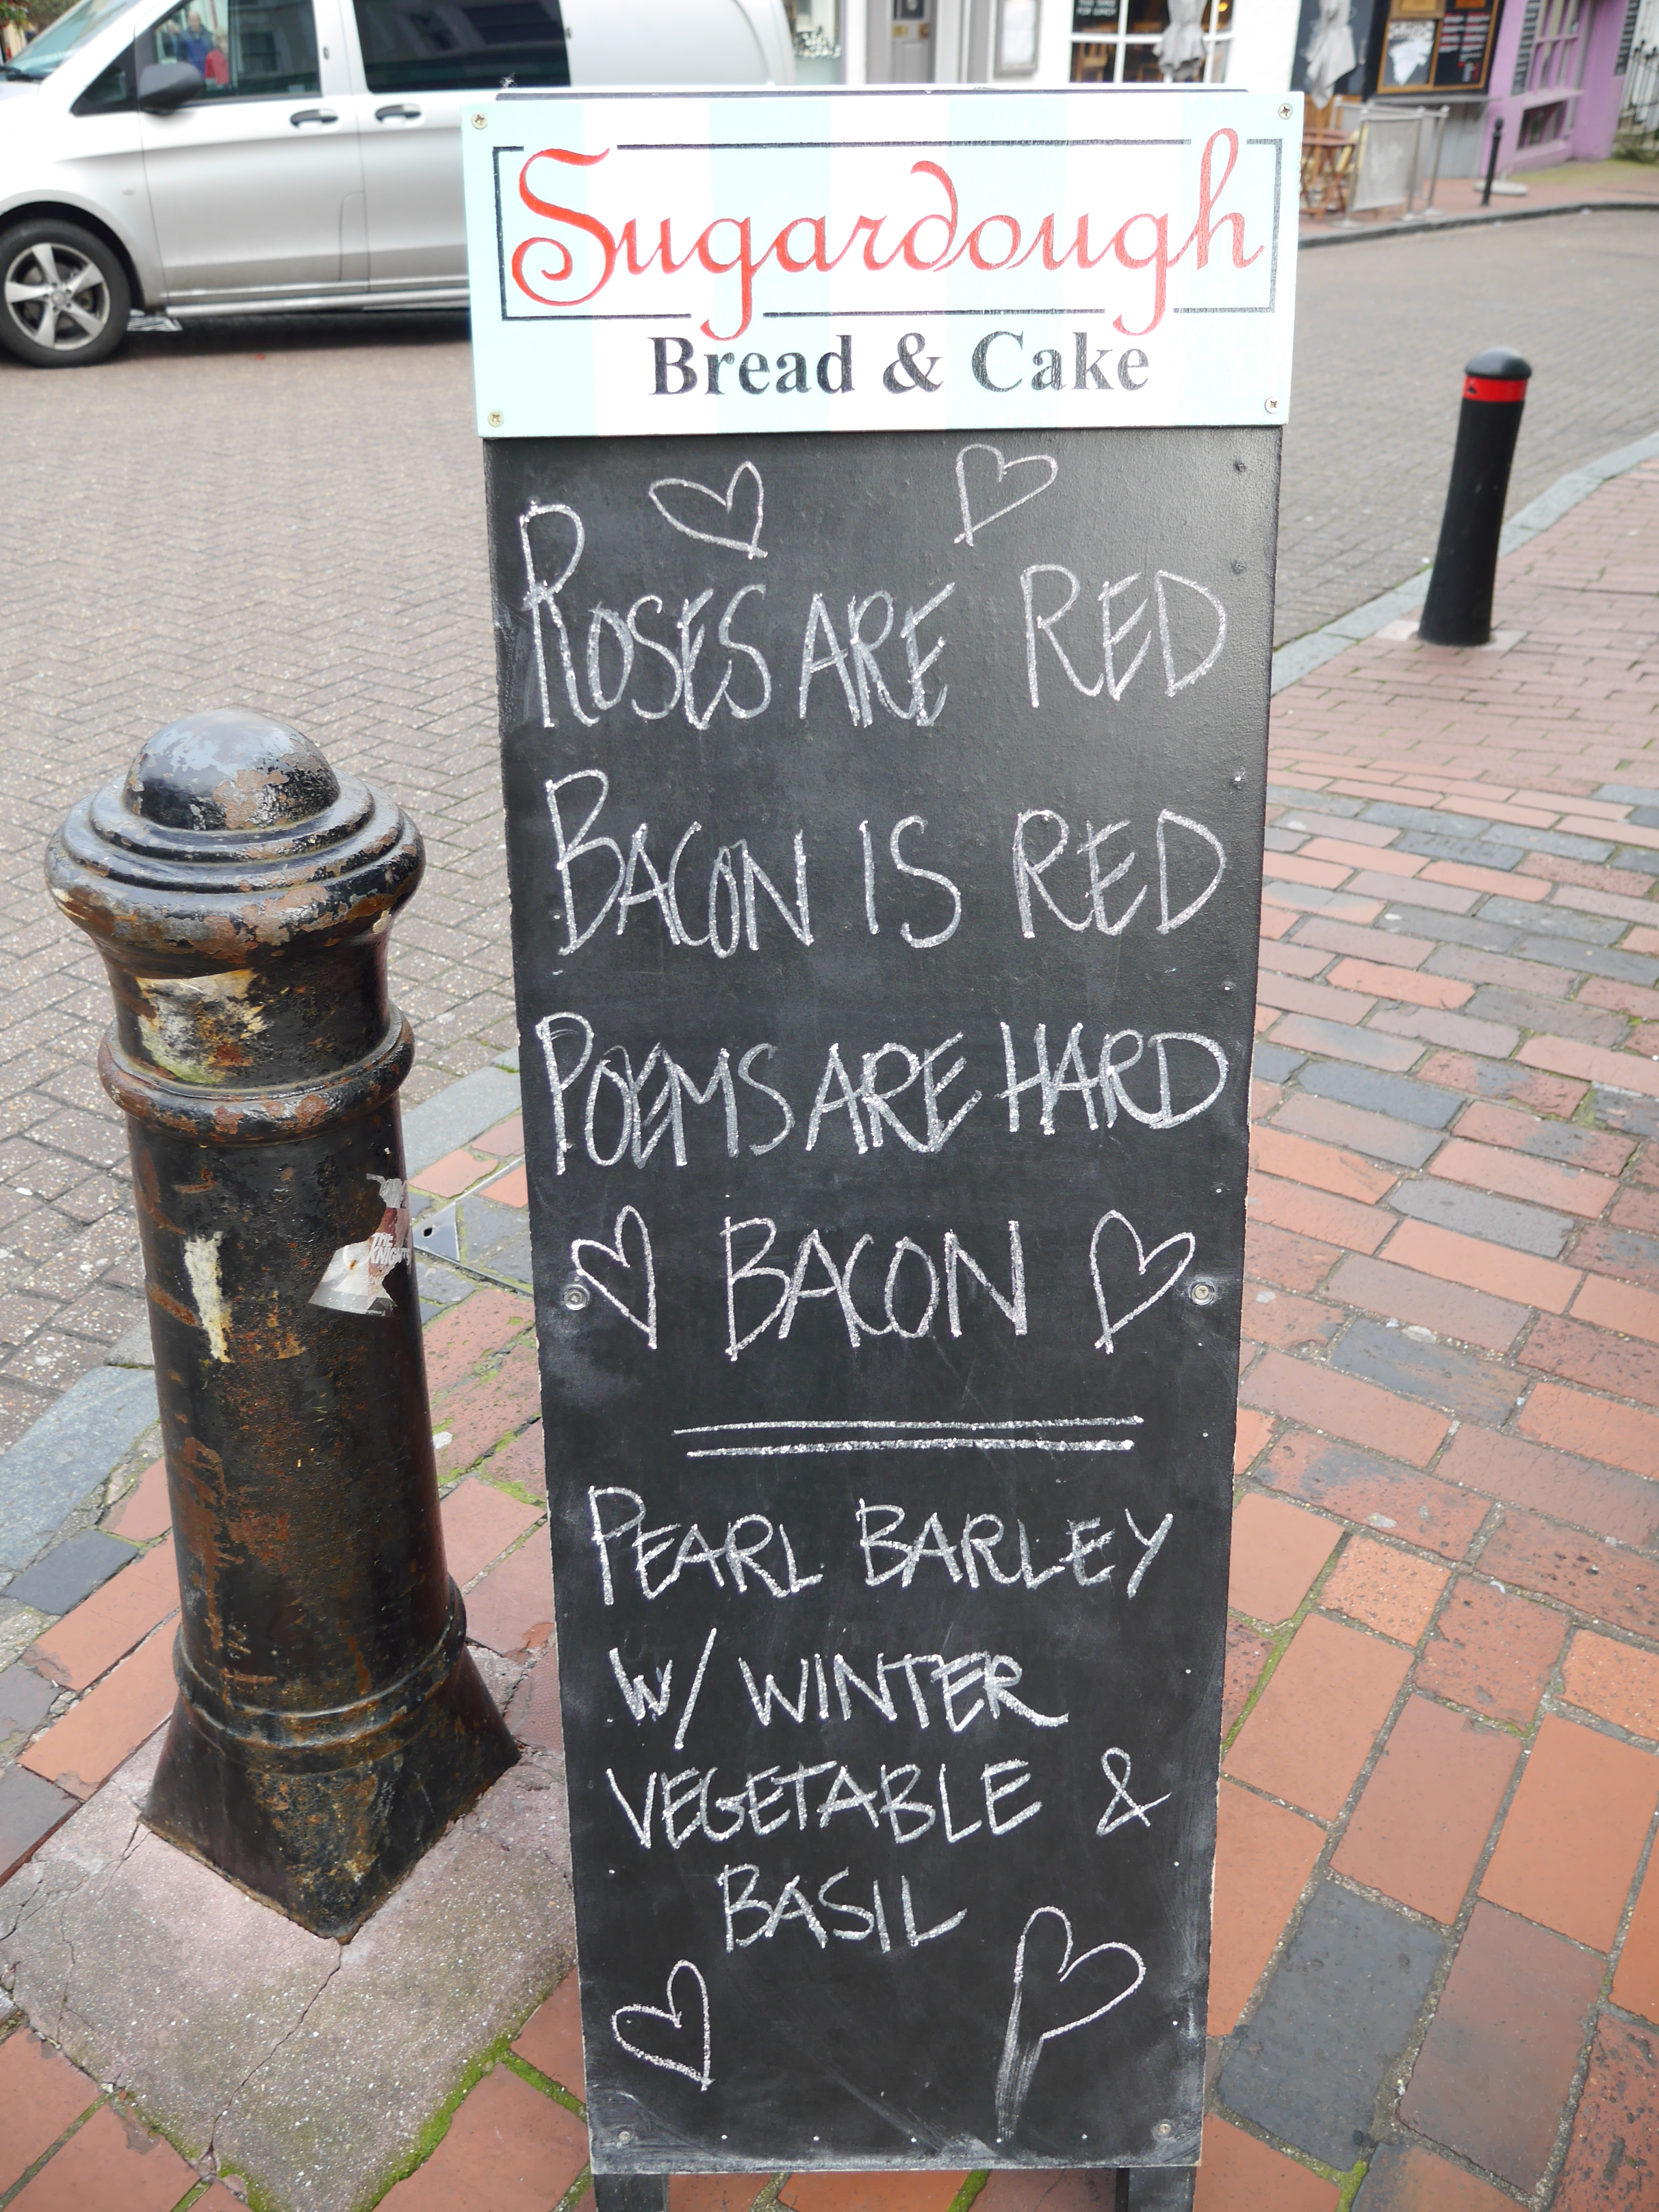 Sugardough
Bread & Cake
ROSES ARE RED
BACON IS RED
POEMS ARE HARD
BACON
PEARL BARLEY
W/ WINTER
VEGETABLE &
BASIL
THE
KNIGHT